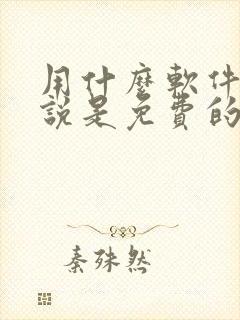 用什麼軟件
說是免費的
秦殊然